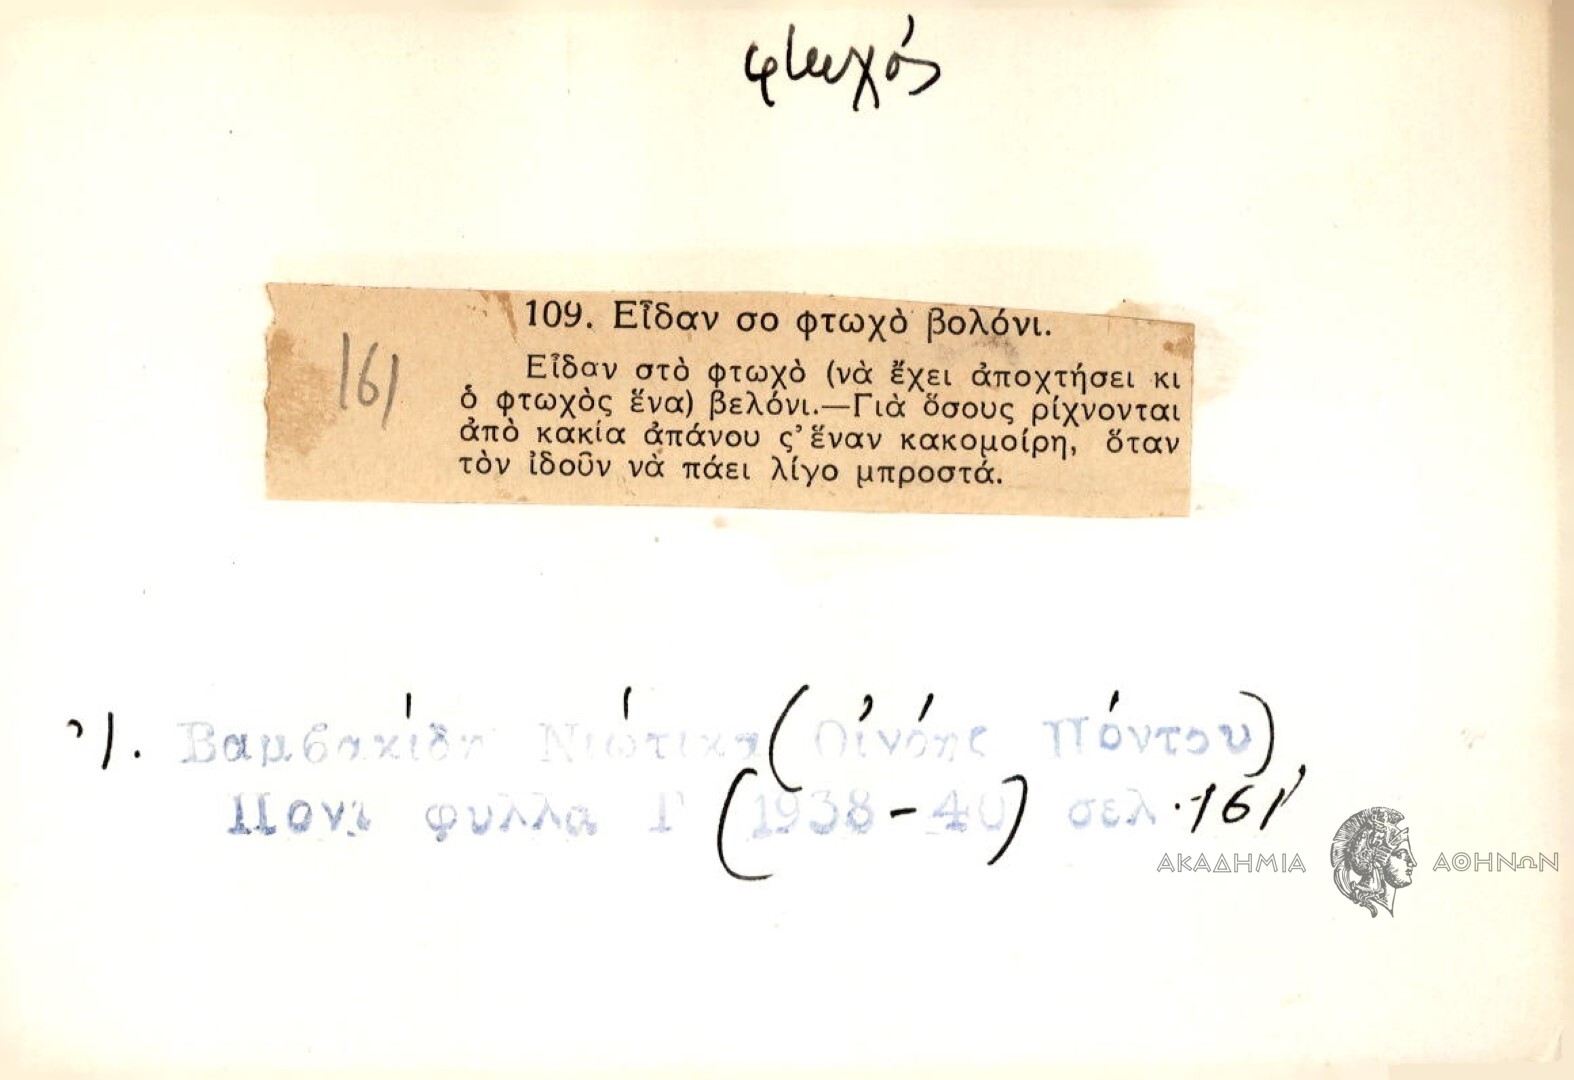 φτωχός
109. Εἶδαν σο φτωχὸ βολόνι.
161
Εἶδαν στὸ φτωχὸ (νὰ ἔχει ἀποχτήσει κι
ὁ φτωχὸς ἕνα) βελόνι.—Γιὰ ὅσους ρίχνονται
ἀπὸ κακία ἀπάνου ς' ἕναν κακομοίρη, ὅταν
τὸν ἰδοῦν νὰ πάει λίγο μπροστά.
Ἰ. Βαμβακίδη Νιώτικα (Οἰνόης Πόντου)
Ποντ φυλλα Γ (1938-40) σελ. 161
ΑΚΑΔΗΜΙΑ ΑΘΗΝΩΝ